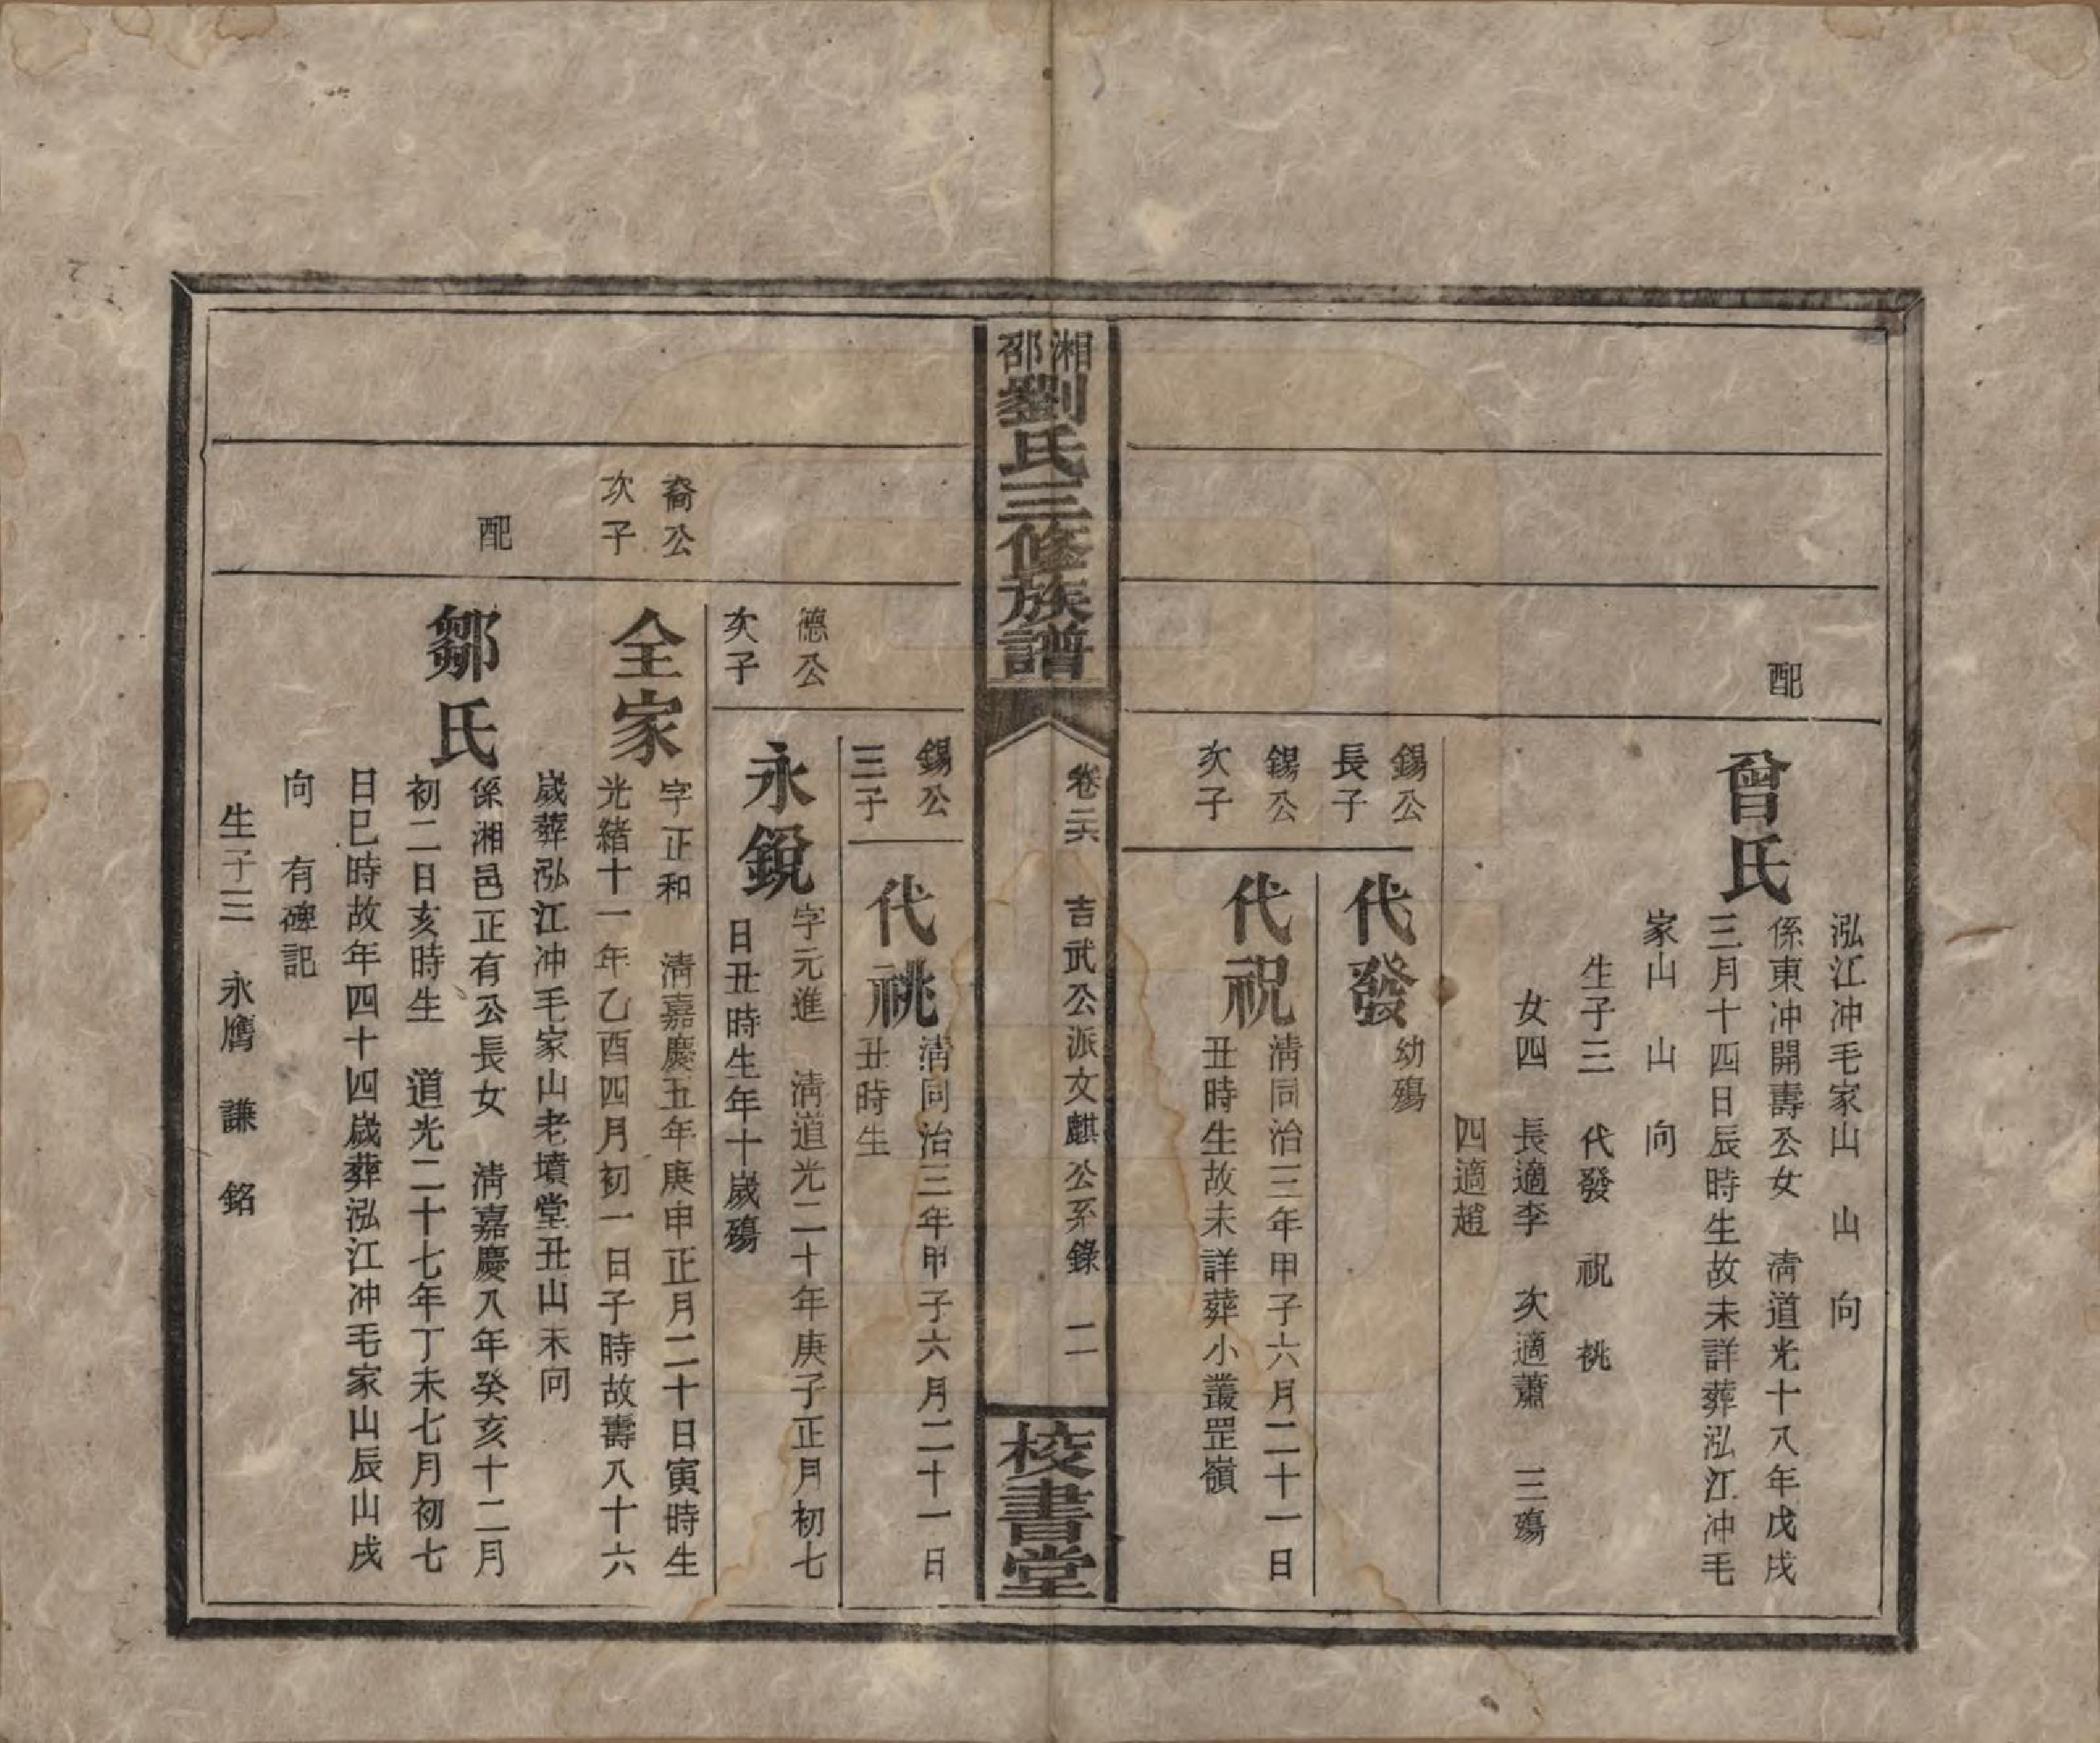 泓江冲毛家山　山　向
配
曾氏
係東冲開壽公女　清道光十八年戊戌
三月十四日辰時生故未詳葬泓江冲毛
家山　山　向
生子三　代發　祝　祧
女四　長適李　次適蕭　三殤
四適趙
錫公
長子
代發
幼殤
錫公
次子
代祝
清同治三年甲子六月二十一日
丑時生故未詳葬小叢罡嶺
湘邵
劉氏三修族譜
卷二六　吉武公派文麒公系錄　二一
校書堂
錫公
三子
代祧
清同治三年甲子六月二十一日
丑時生
德公
次子
永銳
字元進　清道光二十年庚子正月初七
日丑時生年十歲殤
裔公
次子
全家
字正和　清嘉慶五年庚申正月二十日寅時生
光緒十一年乙酉四月初一日子時故壽八十六
歲葬泓江冲毛家山老墳堂丑山未向
配
鄒氏
係湘邑正有公長女　清嘉慶八年癸亥十二月
初二日亥時生　道光二十七年丁未七月初七
日巳時故年四十四歲葬泓江冲毛家山辰山戌
向　有碑記
生子三　永膺　謙　銘